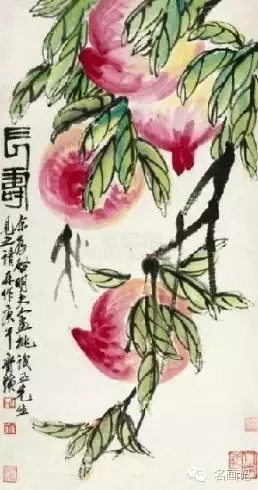 長壽
余為啟明夫人畫桃設五先生
見之請再作庚午齊璜
名画吧